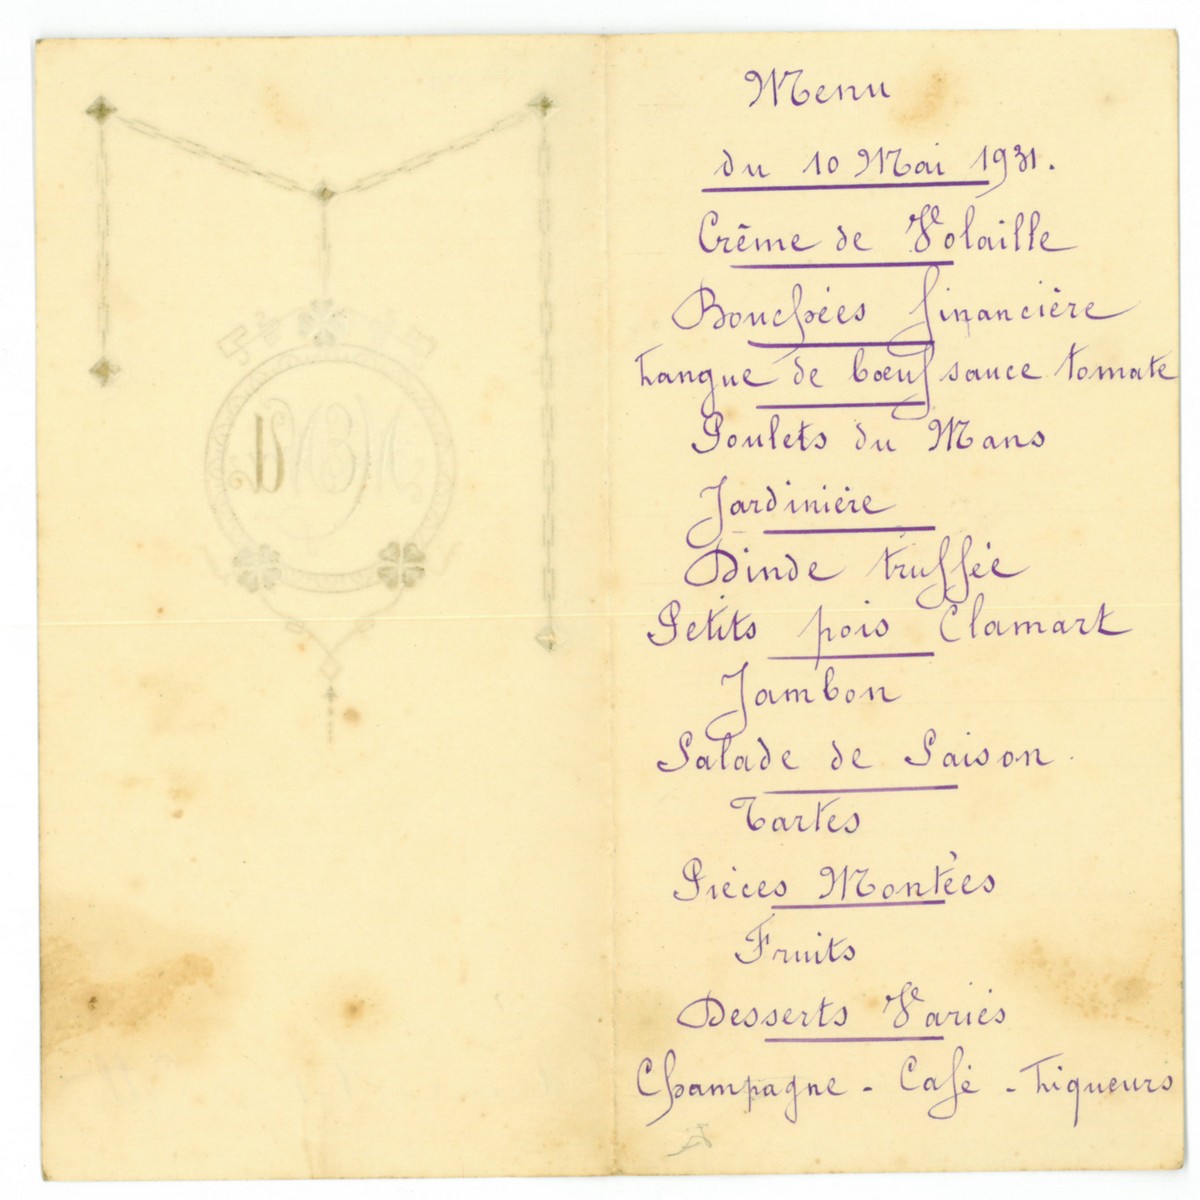 MENU
Menu
du 10 Mai 1931.
Crême de Volaille
Bouchées financière
Langue de bœuf sauce tomate
Poulets du Mans
Jardinière
Dinde truffée
Petits pois Clamart
Jambon
Salade de Saison.
Tartes
Pièces Montées
Fruits
Desserts Variés
Champagne - Café - Liqueurs